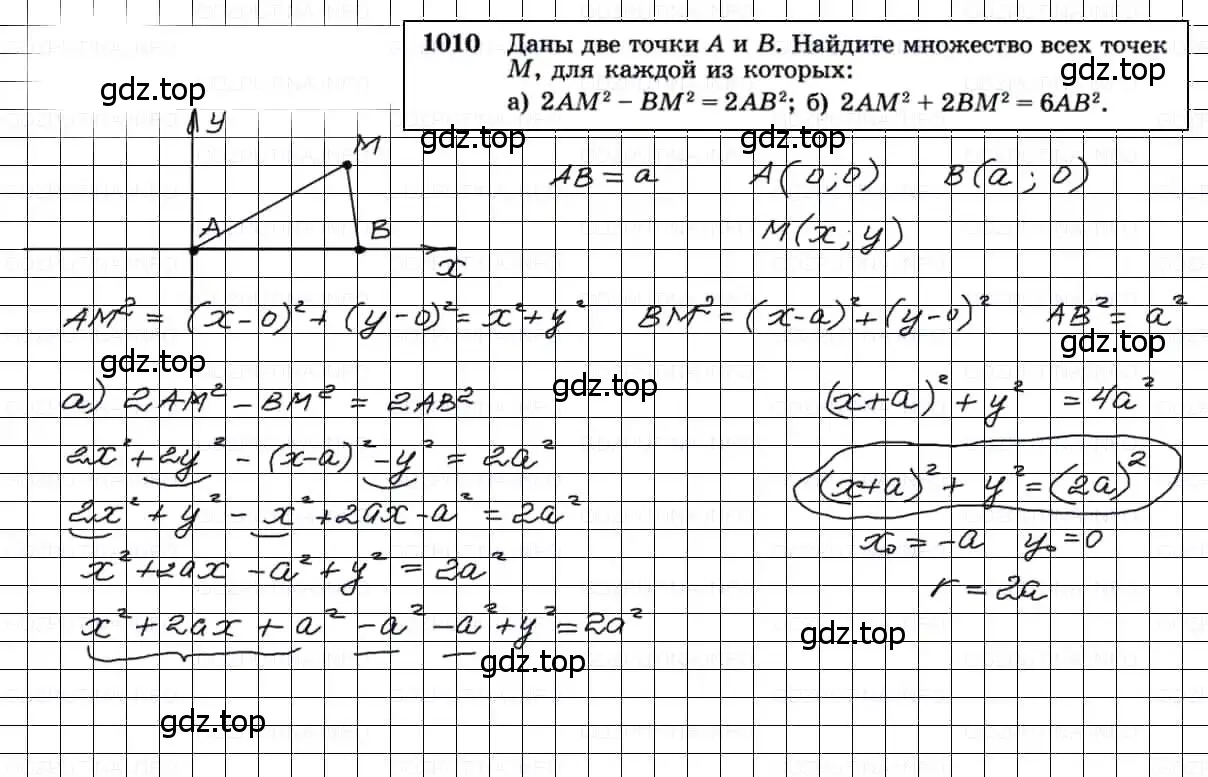 1010 Даны две точки A и B. Найдите множество всех точек
M, для каждой из которых:
а) 2AM² − BM² = 2AB²; б) 2AM² + 2BM² = 6AB².
gdz.top
gdz.top
gdz.top
gdz.top
y
M
A
B
x
AB = a A(0;0) B(a;0)
M(x;y)
AM² = (x−0)²+(y−0)² = x²+y² BM² = (x−a)²+(y−0)² AB² = a²
gdz.top
gdz.top
gdz.top
а) 2AM² − BM² = 2AB²
2x²+2y² − (x−a)² − y² = 2a²
2x²+y² − x²+2ax − a² = 2a²
x²+2ax − a²+y² = 2a²
x²+2ax+a² − a² − a²+y² = 2a²
(x+a)²+y² = 4a²
(x+a)²+y² = (2a)²
x₀ = −a y₀ = 0
r = 2a
gdz.top
gdz.top
gdz.top